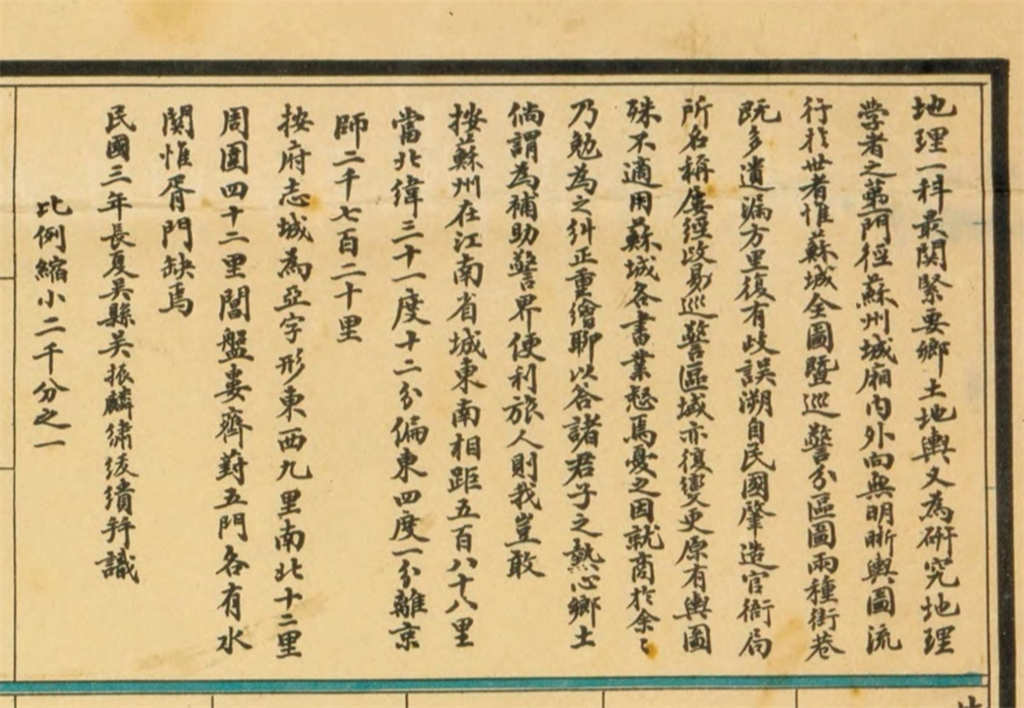 地理一科最関緊要鄉土地輿又為研究地理
學者之第門徑蘇州城廂內外向無明晰輿圖流
行於世者惟蘇城全圖暨巡警分區圖兩種街巷
既多遺漏方里復有歧誤溯自民國肇造官衙局
所名稱屢經改易巡警區域亦復變更原有輿圖
殊不適用蘇城各書業慭焉憂之因就商於余〻
乃勉為之糾正重繪聊以答諸君子之熱心鄉土
倘謂為補助警界便利旅人則我豈敢
按蘇州在江南省城東南相距五百八十八里
當北緯三十一度十二分偏東四度一分離京
師二千七百二十里
按府志城為亞字形東西九里南北十二里
周圍四十二里閶盤婁齊葑五門各有水
関惟胥門缺焉
民國三年長夏吳縣吳振麟繡綾繢并識
比例縮小二千分之一